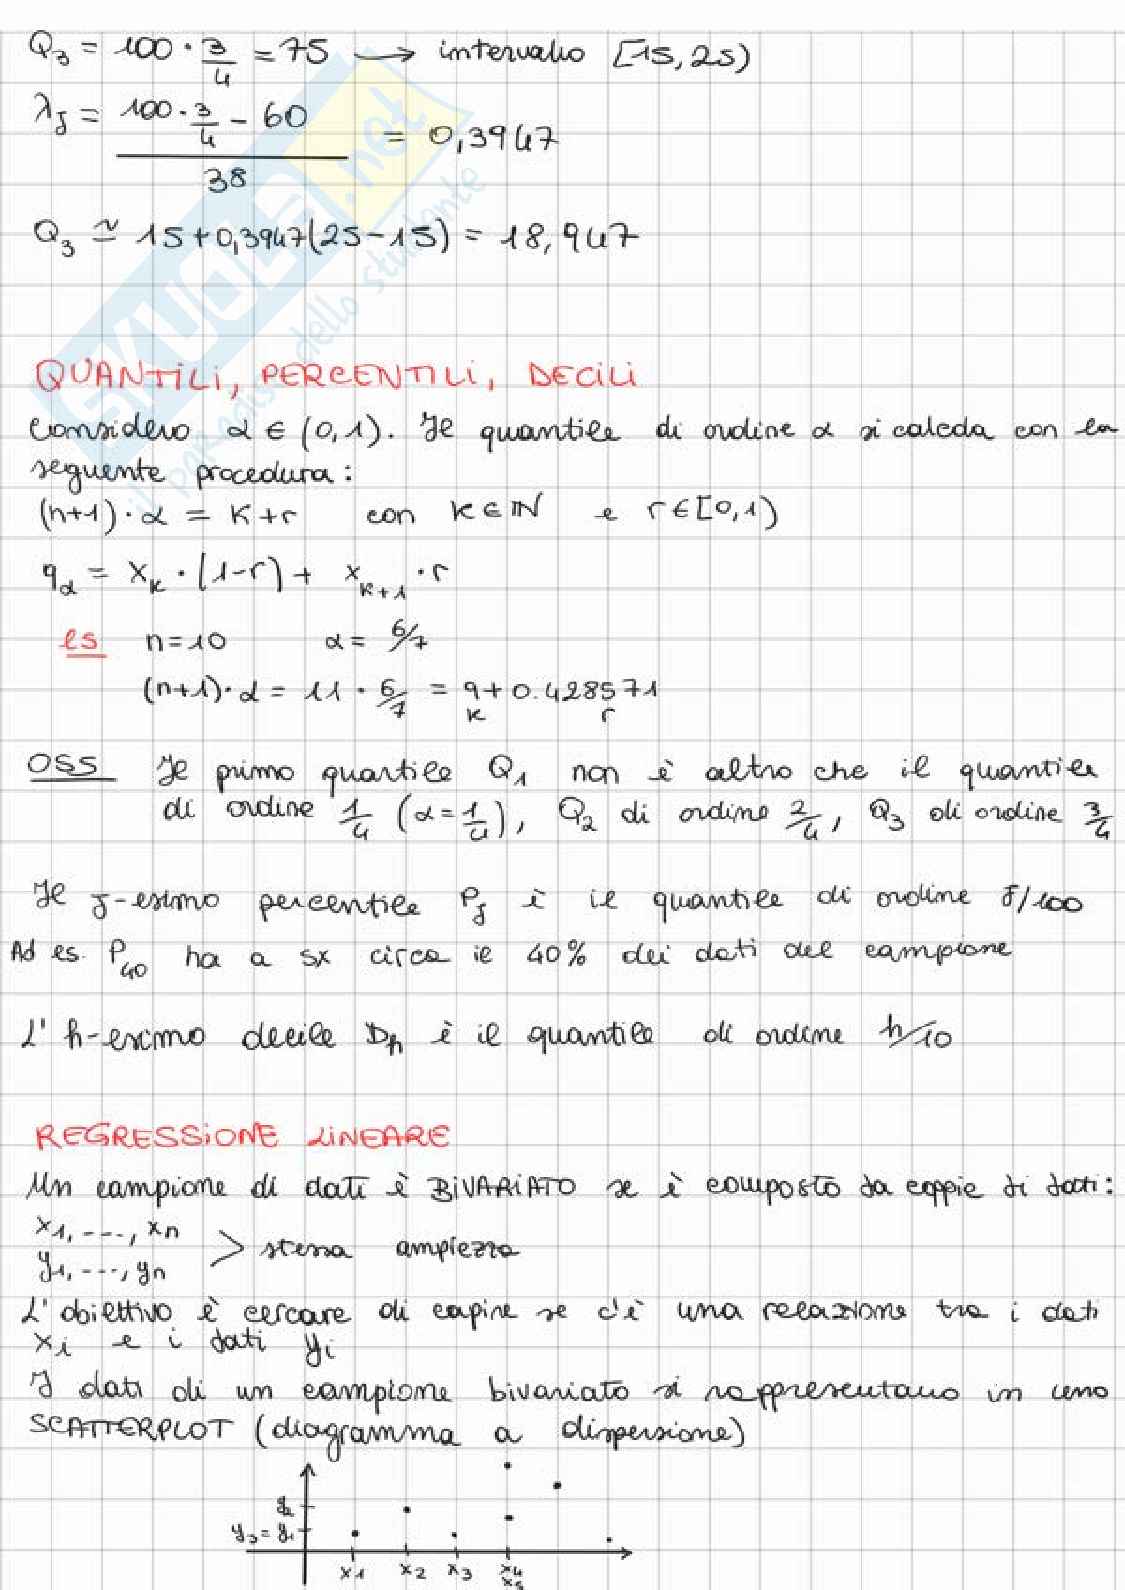 Q₃ = 100 · 3/4 = 75 → intervallo [15, 25)
λⱼ = (100 · 3/4 − 60) / 38 = 0,3947
Q₃ ≃ 15 + 0,3947(25−15) = 18,947
SKUOLA.net
il paradiso dello studente
QUANTILI, PERCENTILI, DECILI
Considero α ∈ (0,1). Il quantile di ordine α si calcola con la
seguente procedura:
(n+1) · α = K + r con K ∈ ℕ e r ∈ [0,1)
q_α = x_K · (1−r) + x_{K+1} · r
es n=10 α = 6/7
(n+1) · α = 11 · 6/7 = 9 + 0.428571
K r
OSS Il primo quartile Q₁ non è altro che il quantile
di ordine 1/4 (α = 1/4), Q₂ di ordine 2/4, Q₃ di ordine 3/4
Il j-esimo percentile Pⱼ è il quantile di ordine j/100
Ad es. P₄₀ ha a sx circa il 40% dei dati del campione
L' h-esimo decile D_h è il quantile di ordine h/10
REGRESSIONE LINEARE
Un campione di dati è BIVARIATO se è composto da coppie di dati:
x₁, ----, xₙ
y₁, ---, yₙ > stessa ampiezza
L' obiettivo è cercare di capire se c'è una relazione tra i dati
xᵢ e i dati yᵢ
I dati di un campione bivariato si rappresentano in uno
SCATTERPLOT (diagramma a dispersione)
y₂
y₃ = y₁
x₁ x₂ x₃ x₄
x₅